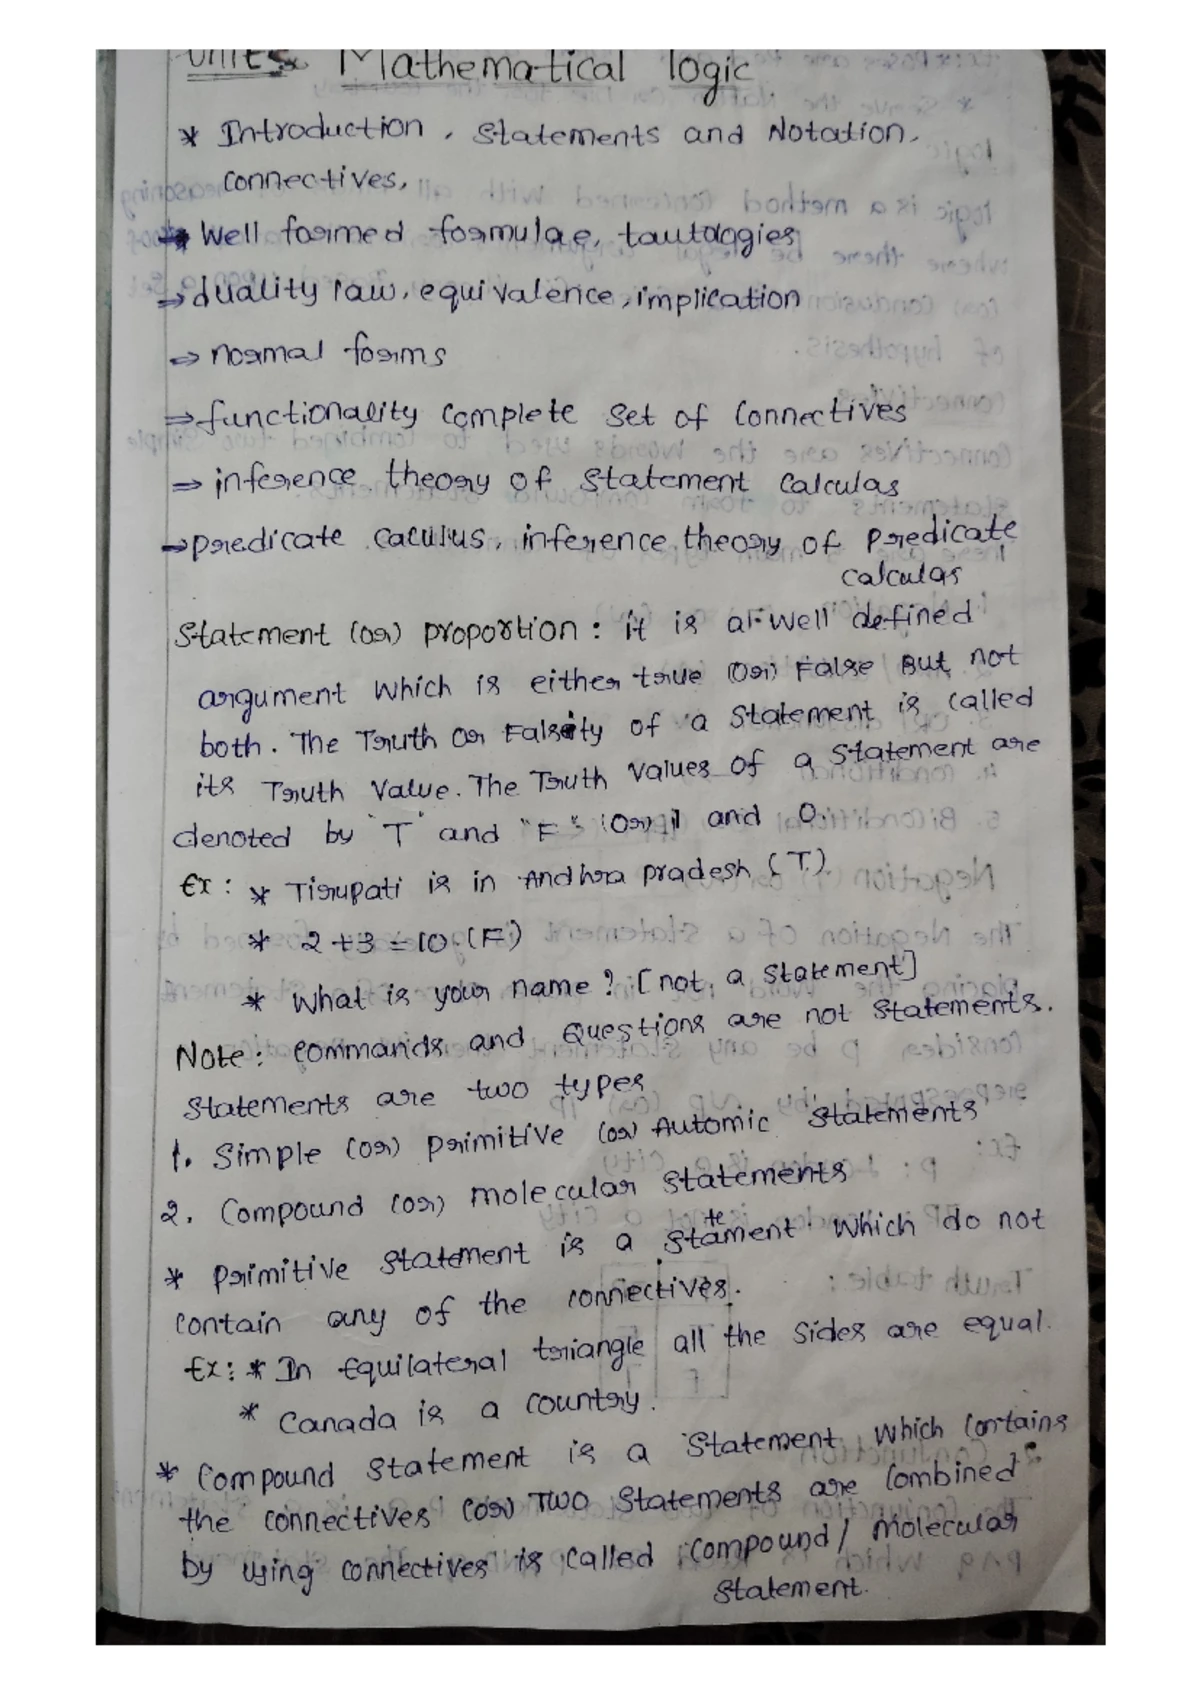 Units Mathematical logic
* Introduction, Statements and Notation,
connectives,
Well formed formulae, tautologies
⇒ duality law, equivalence, implication
⇒ normal forms
⇒ functionality complete set of connectives
⇒ inference theory of statement calculas
⇒ predicate caculus, inference theory of predicate
calculas
Statement (or) proportion : it is a well defined
argument which is either true (or) False But not
both. The Truth or Falsity of a statement is called
its Truth Value. The Truth values of a statement are
denoted by "T" and "F" (or) 1 and 0.
Ex : * Tirupati is in Andhra pradesh (T)
* 2+3 = 10 (F)
* What is your name ? [not a statement]
Note : commands and Questions are not statements.
Statements are two types
1. Simple (or) primitive (or) Automic statements
2. Compound (or) molecular statements
* primitive statement is a statement which do not
contain any of the connectives.
Ex : * In Equilateral triangle all the sides are equal.
* Canada is a country.
* Compound statement is a statement which contains
the connectives (or) Two statements are combined
by using connectives is called compound / molecular
statement.